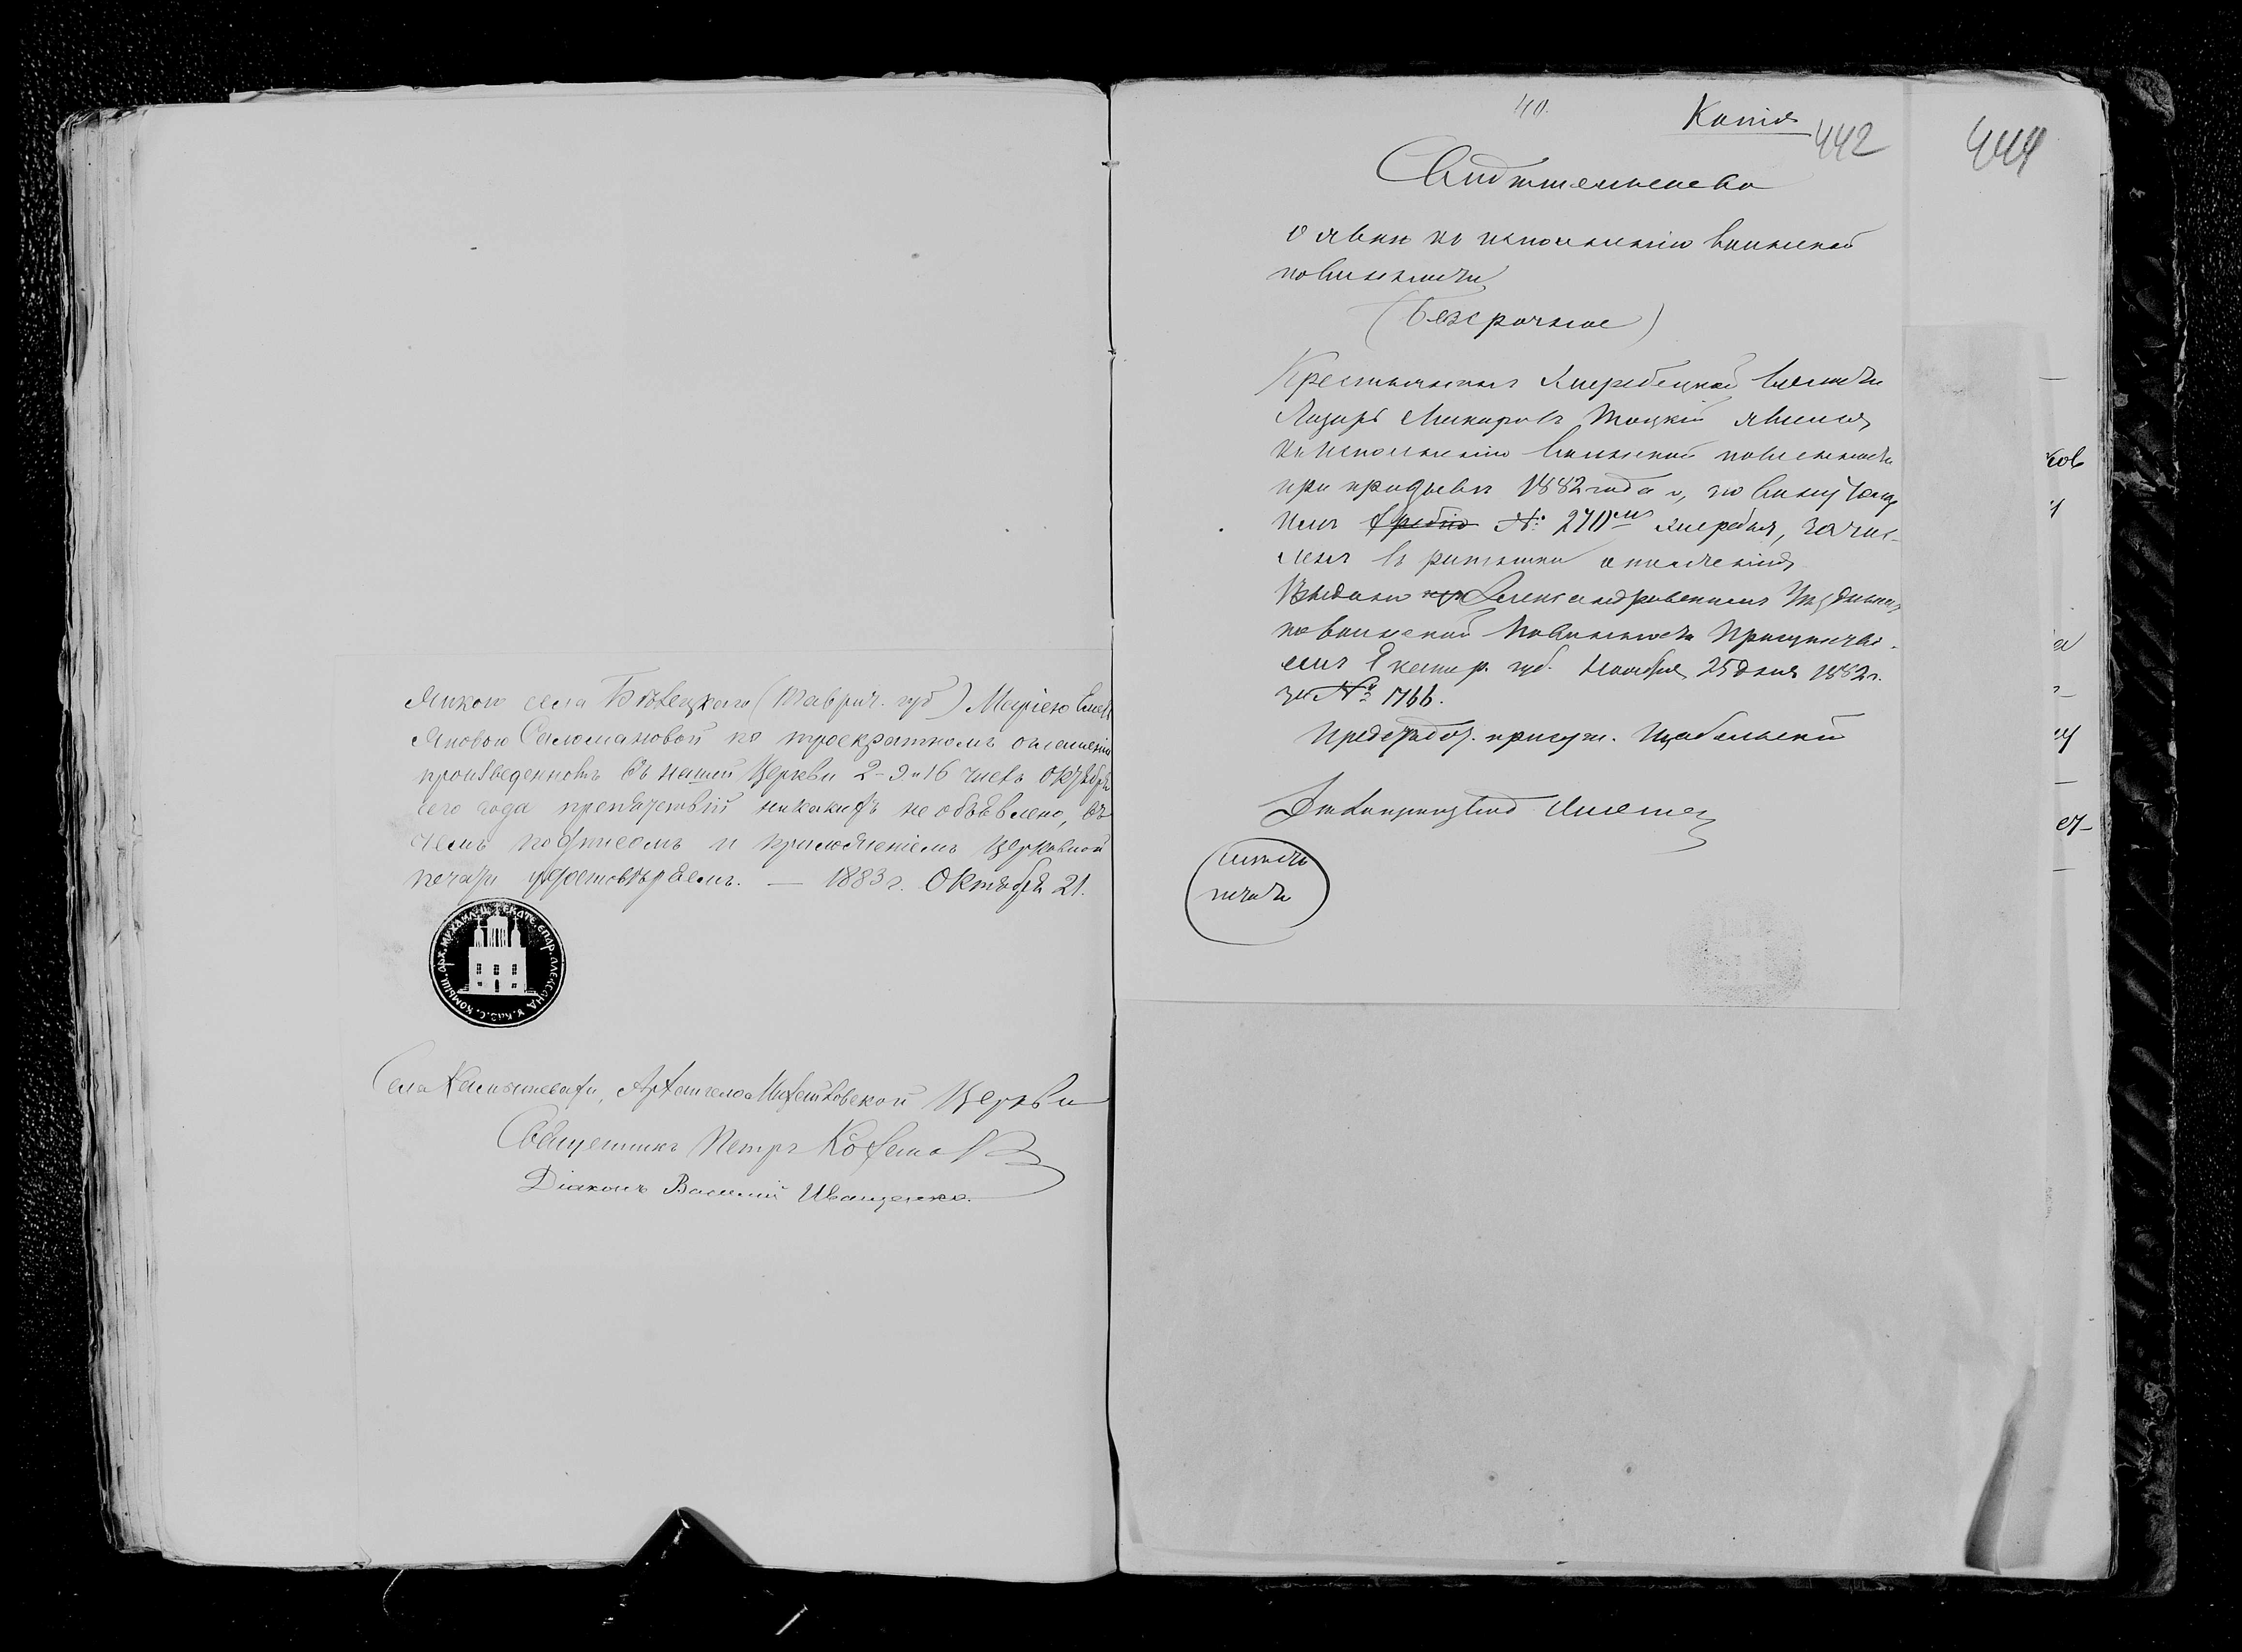 ликою села Бѣлецкаго (Таврич. губ) Маріею Емел
яновою Саломановой по троекратномъ оглашеніи
произведенномъ въ нашей Церкви 2-9 и 16 числъ Октября
сего года препятствій никакихъ не объявлено, въ
чемъ подписомъ и приложеніемъ церковной
печати удостовѣряемъ. — 1883 г. Октября 21.
Села Камышевахи, Архангело Михайловской Церкви
Священникъ Петръ
Діаконъ Василій Иващенко.
40.
Копія
442
444
Свидѣтельство
о явкѣ къ исполненію воинской
повинности
(Безсрочное)
Крестьянинъ Жеребецкой волости
Лазарь Никифоровъ Тоцкій явился
къ исполненію воинской повинности
при призывѣ 1882 года и, по вынутому
имъ № 270мъ жеребья, зачис-
ленъ въ ратники ополченія
Выдано Александровскимъ Уѣзднымъ
по воинской Повинности Присутстві-
емъ Екатер. губ. Ноября 25 дня 1882 г.
за № 1766.
Предсѣдат. присутст.
Дѣлопроизвод.
мѣсто
печати